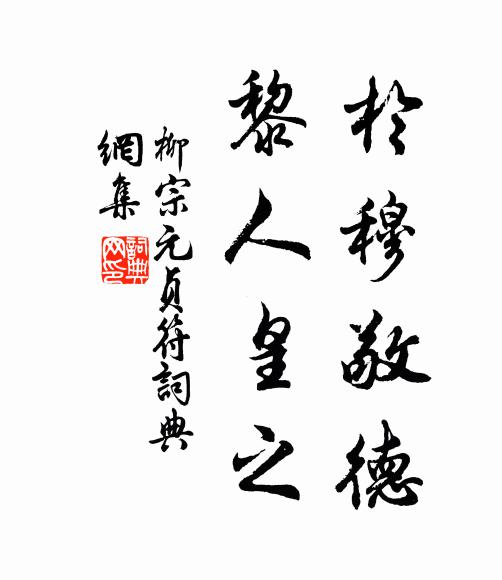 於穆敬德
黎人皇之
柳宗元貞符詞典
網集
詞典網印